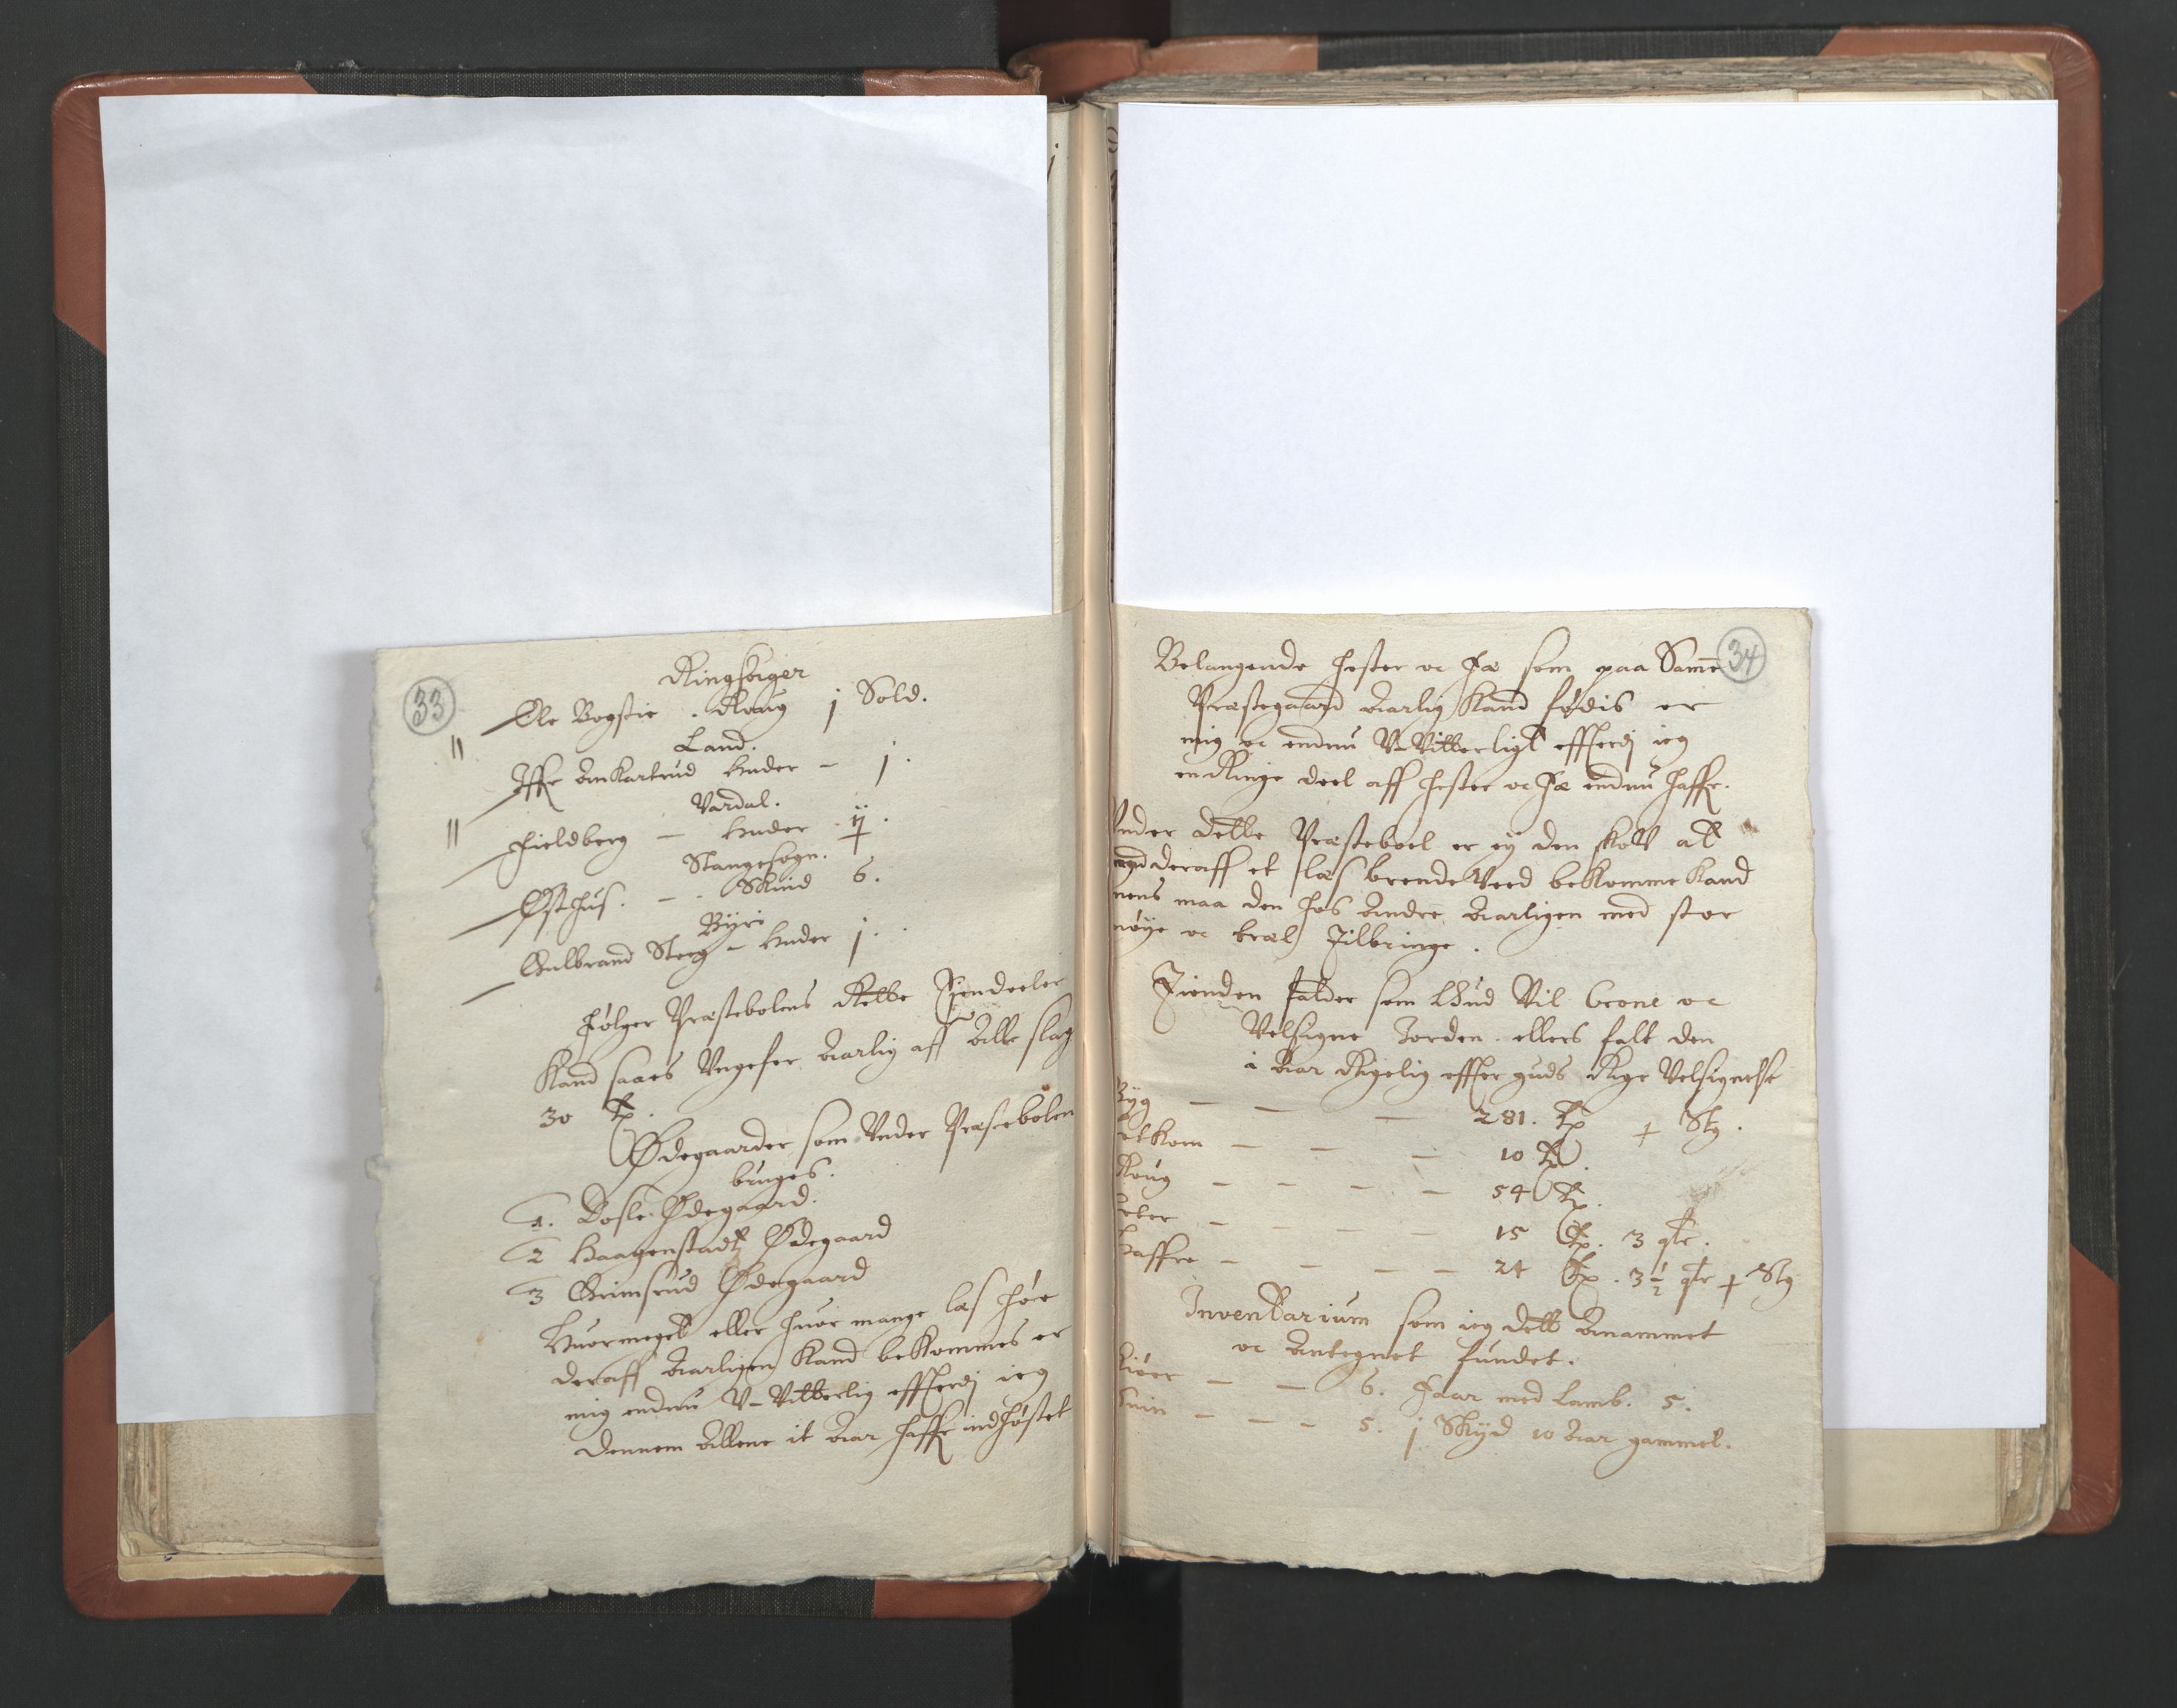 33
Ringsager
Ole Bogstie . Roug j Sold.
Land.
Iffr Amkartrud Huder – j .
Vardal.
Fieldberg – Huder .
Stangesogn.
Østhus. – . Skind 6.
Byri
Gulbrand Steeg – Huder j .
Følger Præstebolens Rette Eyendeeler
Kand saaes Ungefer Aarlig aff Alle slag
30 Tr.
Ødegaarder som Under Præstebolen
bruges.
1. Dosle Ødegaard.
2 Haagenstadtz Ødegaard
3 Grimsrud Ødegaard
Huormeget eller huor mange læs Høe
deraff Aarligen Kand bekommes er
mig endnu U-Vitterlig effterdj ieg
dennem Allene it Aar haffr indhøstet
34
Belangende Hester oc Fæ som paa Samme
Præstegaard Aarlig Kand fødis er
mig oc endnu U-Vitterligt effterdj ieg
en Ringe deel aff Hester oc Fæ endnu haffr.
Under dette Præsteboel er ey den skow at
mand deraff et læs brende Veed bekomme Kand
mens maa den hos Andre Aarligen med stor
møye oc træl Tilbringe .
Tienden falder som Gud Vil Crone oc
Velsigne Jorden . ellers falt den
i Aar Rigelig effter guds Rige Velsignelse
Byg – – – 281. Tr + Sk .
– – – 10 Tr .
Roug – – – – 54 Tr .
Erter – – – – 15 Tr . 3 qtr .
Haffre – – – – 24 Tr . 3 ½ qtr + Sk
Inventarium som ieg dett Anammet
oc Antegnet fundet.
Kiøer – – 6. Faar med Lamb. 5.
Suin – – – 5. j Skyd 10 Aar gammel.